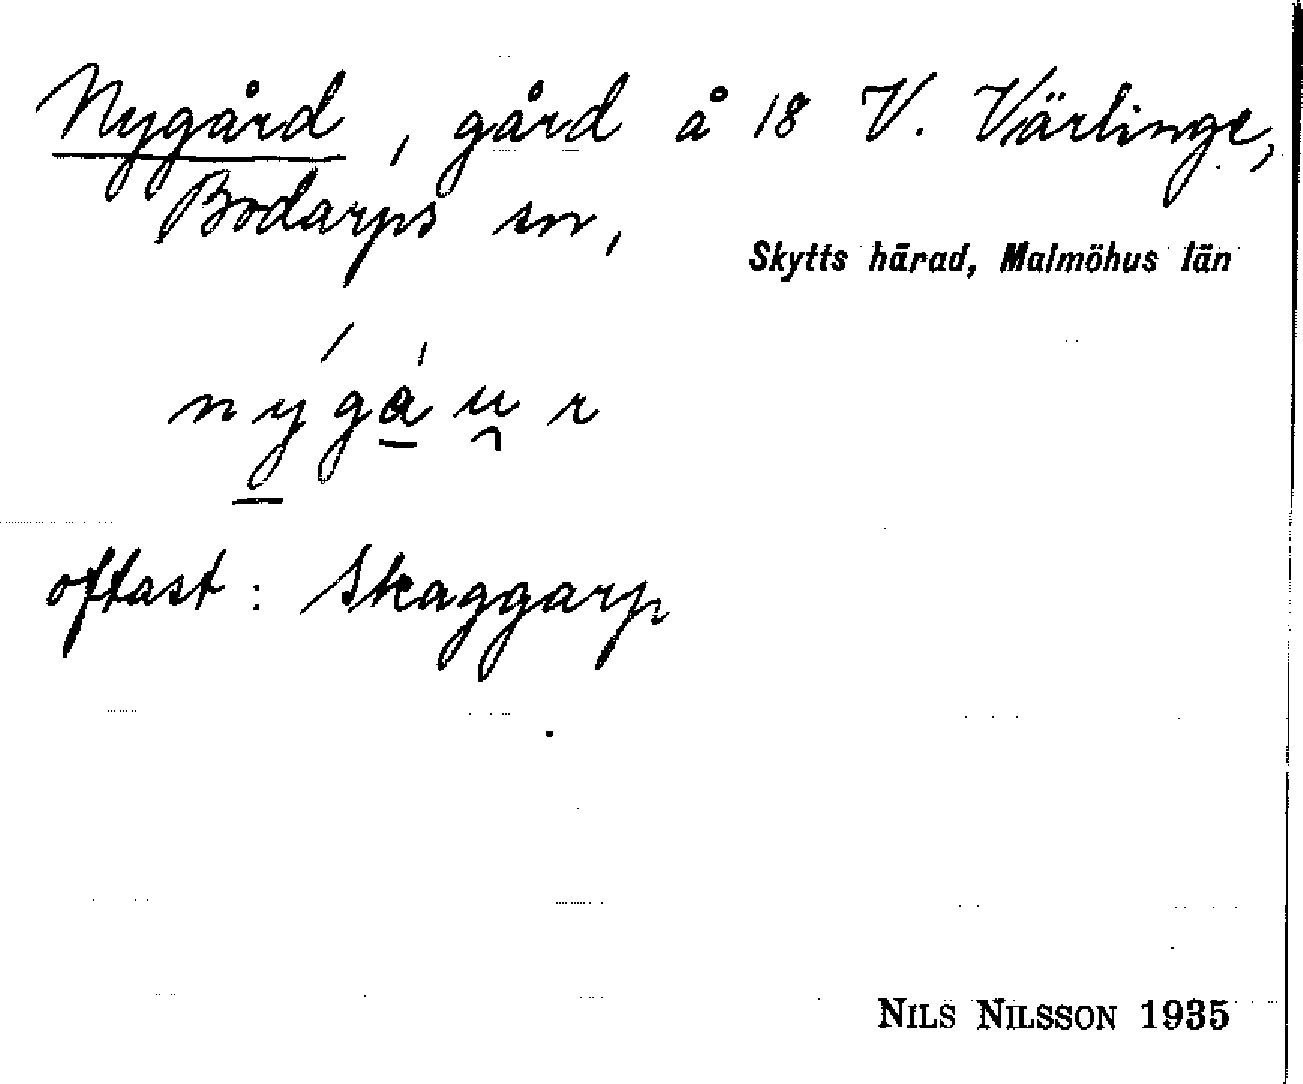 Nygård, gård å 18 V. Värlinge,
Bodarps sn,
Skytts härad, Malmöhus län
nýgáu̯r
oftast: Skaggarp
NILS NILSSON 1935